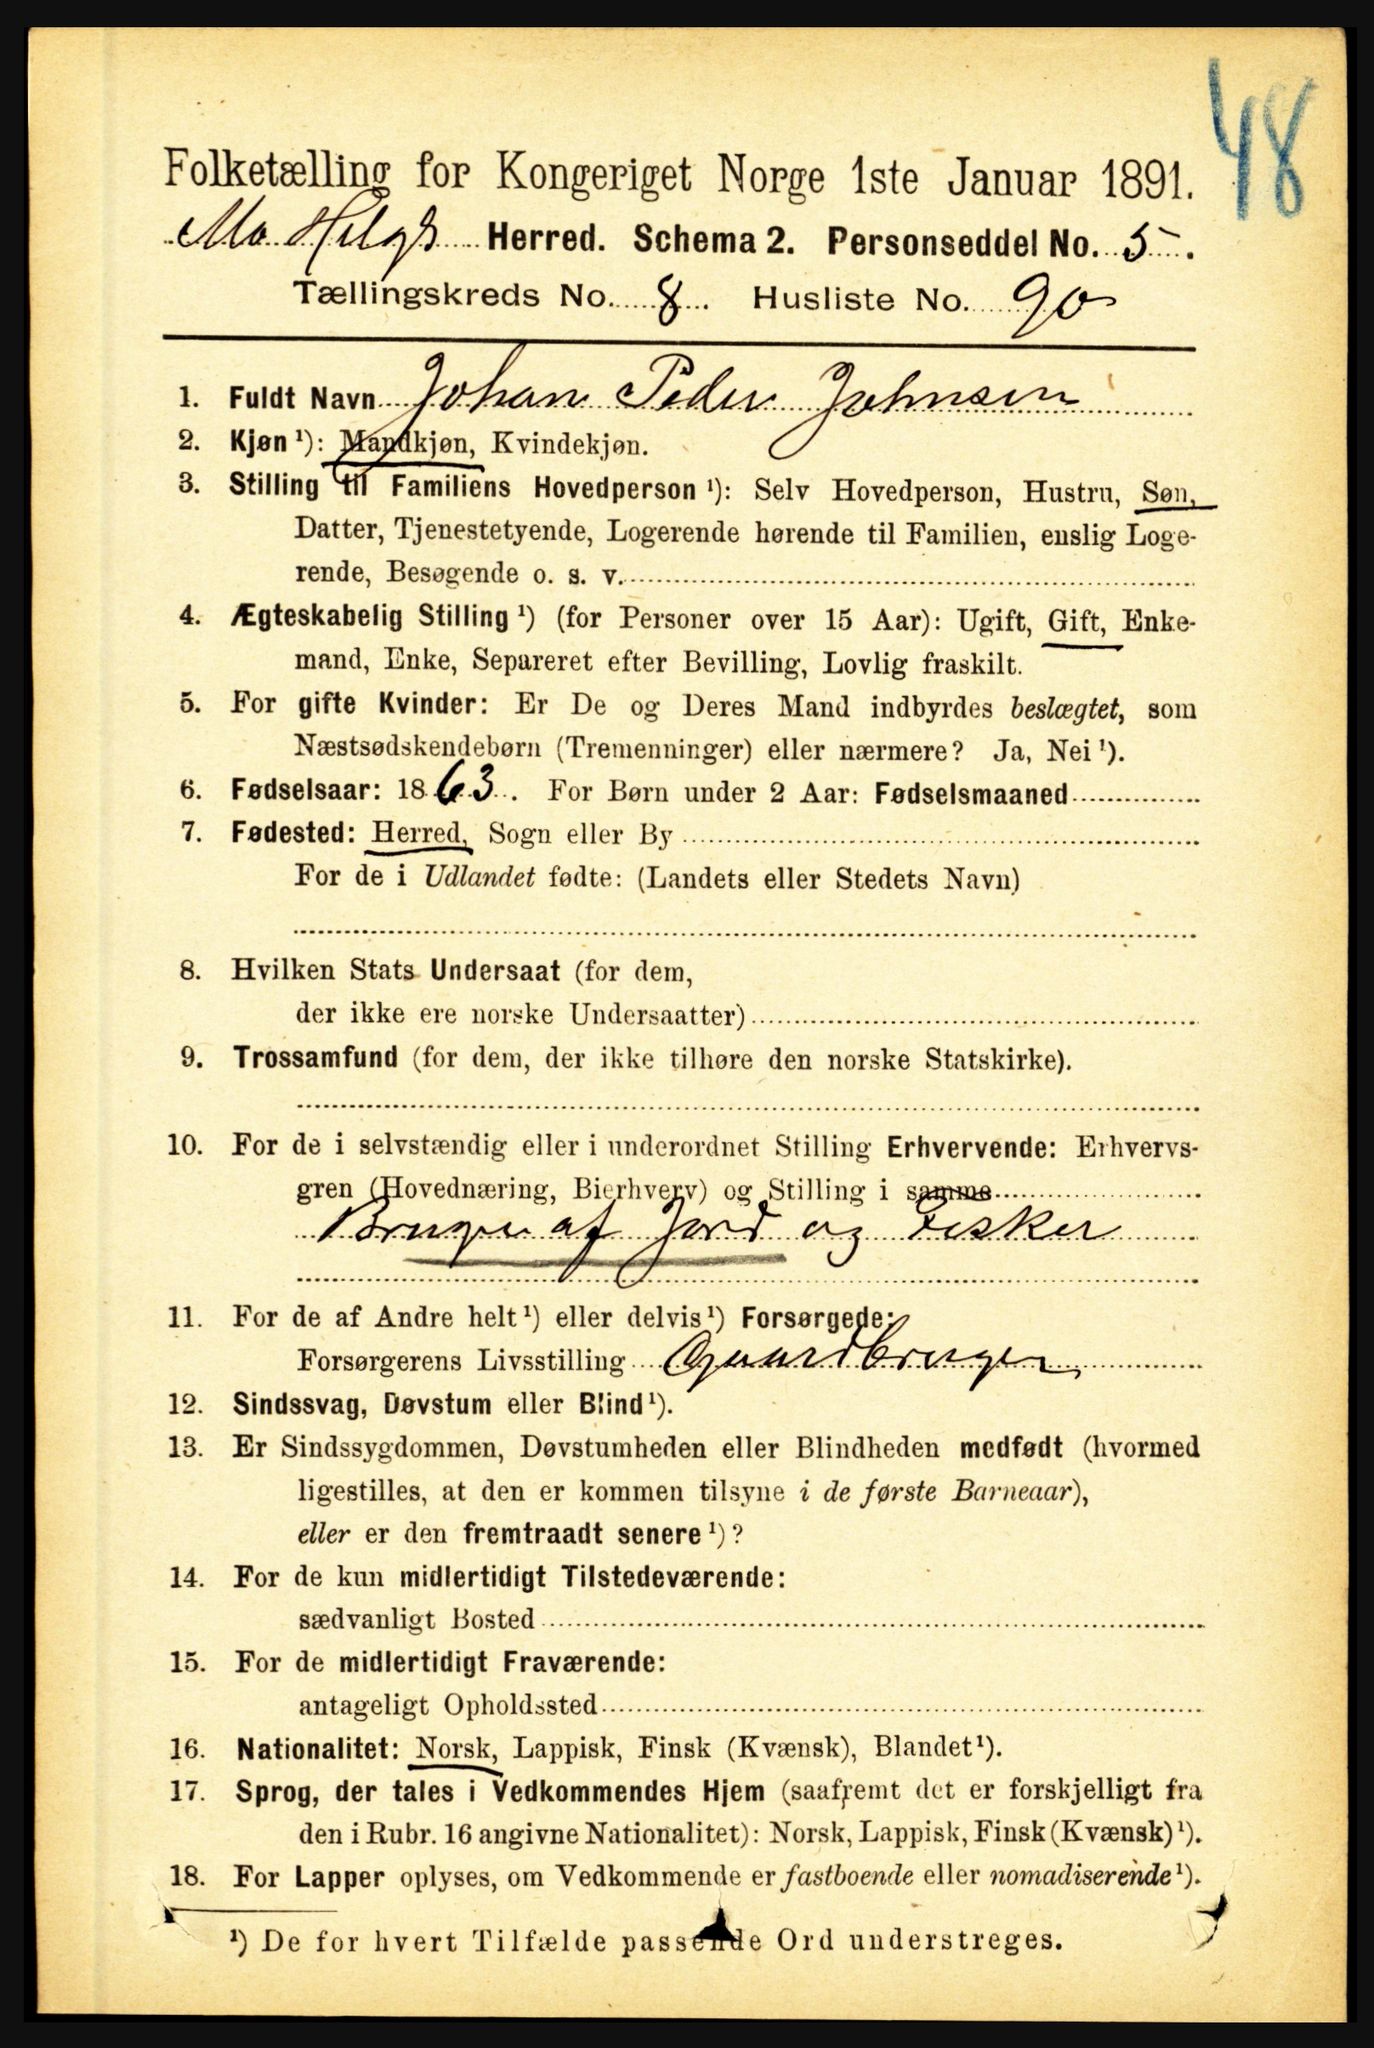 48
Folketælling for Kongeriget Norge 1ste Januar 1891.
Mo Helg. Herred. Schema 2. Personseddel No. 5.
Tællingskreds No. 8. Husliste No. 90
1. Fuldt Navn Johan Peder Johnsen
2. Kjøn ¹): Mandkjøn, Kvindekjøn.
3. Stilling til Familiens Hovedperson ¹): Selv Hovedperson, Hustru, Søn,
Datter, Tjenestetyende, Logerende hørende til Familien, enslig Loge-
rende, Besøgende o. s. v.
4. Ægteskabelig Stilling ¹) (for Personer over 15 Aar): Ugift, Gift, Enke-
mand, Enke, Separeret efter Bevilling, Lovlig fraskilt.
5. For gifte Kvinder: Er De og Deres Mand indbyrdes beslægtet, som
Næstsødskendebørn (Tremenninger) eller nærmere? Ja, Nei ¹).
6. Fødselsaar: 1863. For Børn under 2 Aar: Fødselsmaaned
7. Fødested: Herred, Sogn eller By
For de i Udlandet fødte: (Landets eller Stedets Navn)
8. Hvilken Stats Undersaat (for dem,
der ikke ere norske Undersaatter)
9. Trossamfund (for dem, der ikke tilhøre den norske Statskirke).
10. For de i selvstændig eller i underordnet Stilling Erhvervende: Erhvervs-
gren (Hovednæring, Bierhverv) og Stilling i samme
Bruger af Jord og Fisker
11. For de af Andre helt ¹) eller delvis ¹) Forsørgede:
Forsørgerens Livsstilling Gaardbruger
12. Sindssvag, Døvstum eller Blind ¹).
13. Er Sindssygdommen, Døvstumheden eller Blindheden medfødt (hvormed
ligestilles, at den er kommen tilsyne i de første Barneaar),
eller er den fremtraadt senere ¹)?
14. For de kun midlertidigt Tilstedeværende:
sædvanligt Bosted
15. For de midlertidigt Fraværende:
antageligt Opholdssted
16. Nationalitet: Norsk, Lappisk, Finsk (Kvænsk), Blandet ¹).
17. Sprog, der tales i Vedkommendes Hjem (saafremt det er forskjelligt fra
den i Rubr. 16 angivne Nationalitet): Norsk, Lappisk, Finsk (Kvænsk) ¹).
18. For Lapper oplyses, om Vedkommende er fastboende eller nomadiserende ¹).
¹) De for hvert Tilfælde passende Ord understreges.